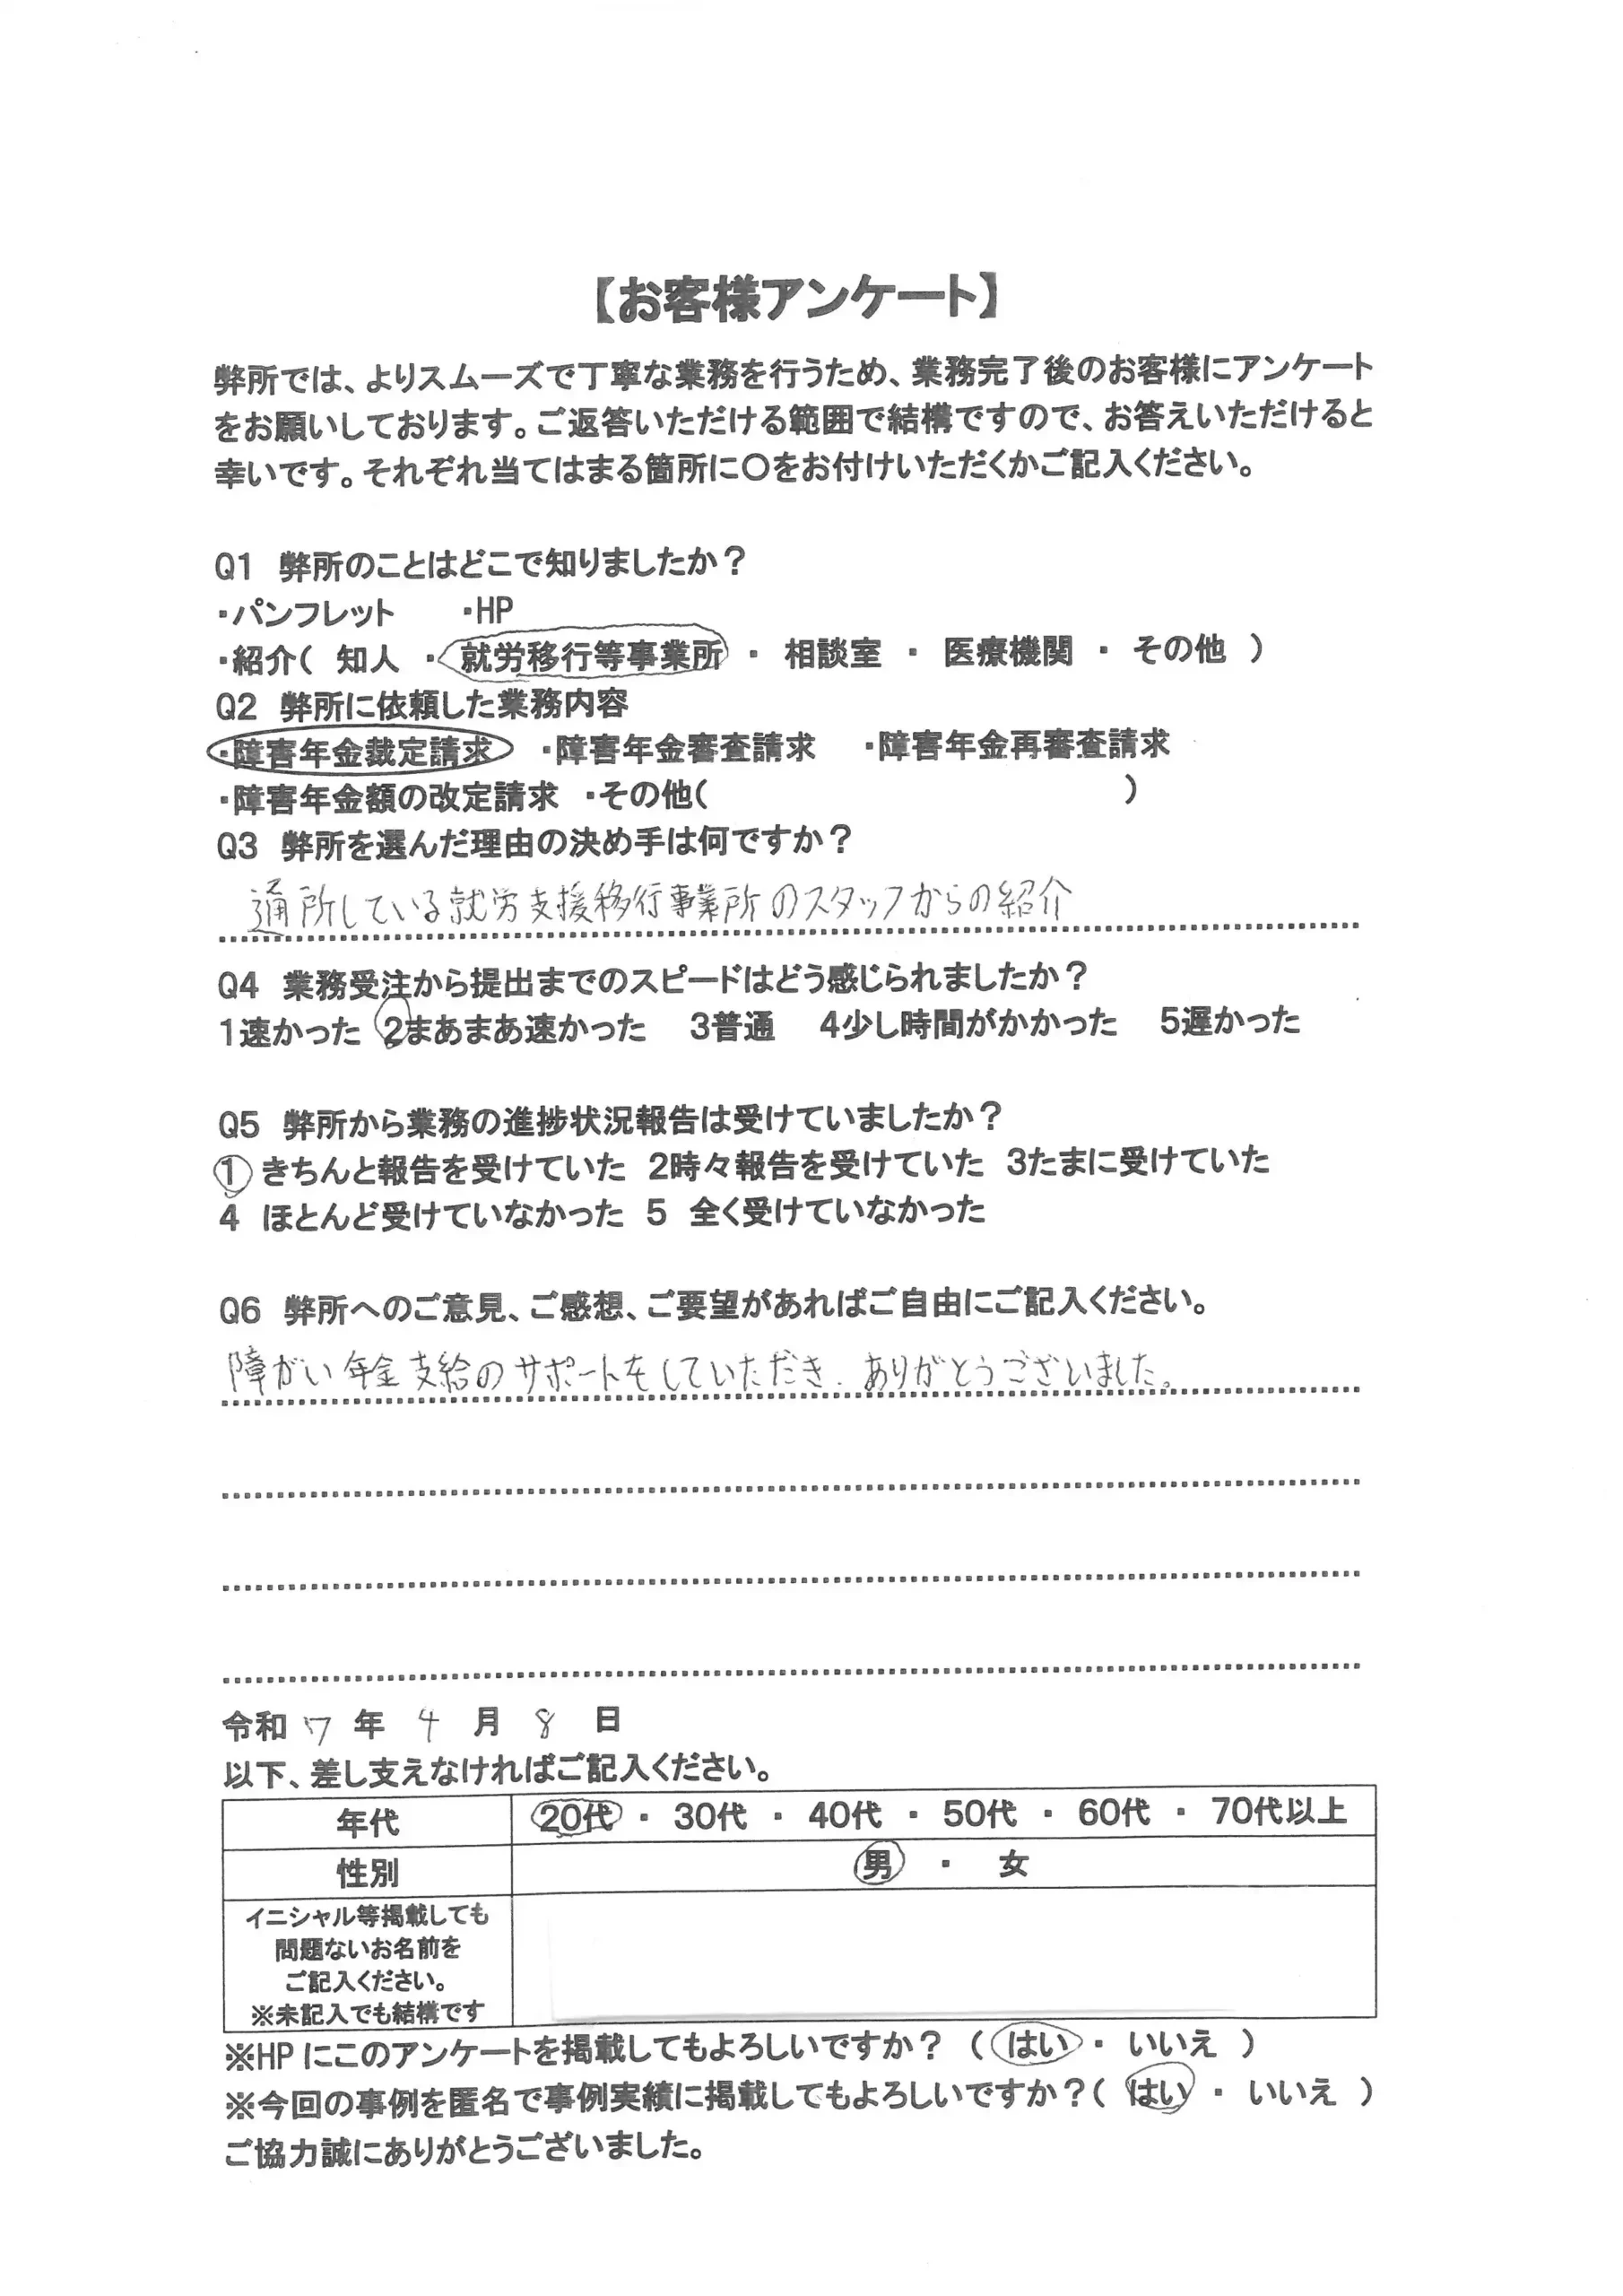 【お客様アンケート】
弊所では、よりスムーズで丁寧な業務を行うため、業務完了後のお客様にアンケート
をお願いしております。ご返答いただける範囲で結構ですので、お答えいただけると
幸いです。それぞれ当てはまる箇所に〇をお付けいただくかご記入ください。
Q1　弊所のことはどこで知りましたか？
・パンフレット　　・HP
・紹介(　知人　・　就労移行等事業所　・　相談室　・　医療機関　・　その他　)
Q2　弊所に依頼した業務内容
・障害年金裁定請求　・障害年金審査請求　・障害年金再審査請求
・障害年金額の改定請求　・その他(　　　　　　　　　　　　　)
Q3　弊所を選んだ理由の決め手は何ですか？
通所している就労支援移行事業所のスタッフからの紹介
Q4　業務受注から提出までのスピードはどう感じられましたか？
1速かった　2まあまあ速かった　3普通　4少し時間がかかった　5遅かった
Q5　弊所から業務の進捗状況報告は受けていましたか？
1　きちんと報告を受けていた　2時々報告を受けていた　3たまに受けていた
4　ほとんど受けていなかった　5　全く受けていなかった
Q6　弊所へのご意見、ご感想、ご要望があればご自由にご記入ください。
障がい年金支給のサポートをしていただき、ありがとうございました。
令和 7 年 4 月 8 日
以下、差し支えなければご記入ください。
年代　20代　・　30代　・　40代　・　50代　・　60代　・　70代以上
性別　男　・　女
イニシャル等掲載しても
問題ないお名前を
ご記入ください。
※未記入でも結構です
※HPにこのアンケートを掲載してもよろしいですか？（　はい　・　いいえ　）
※今回の事例を匿名で事例実績に掲載してもよろしいですか？（　はい　・　いいえ　）
ご協力誠にありがとうございました。